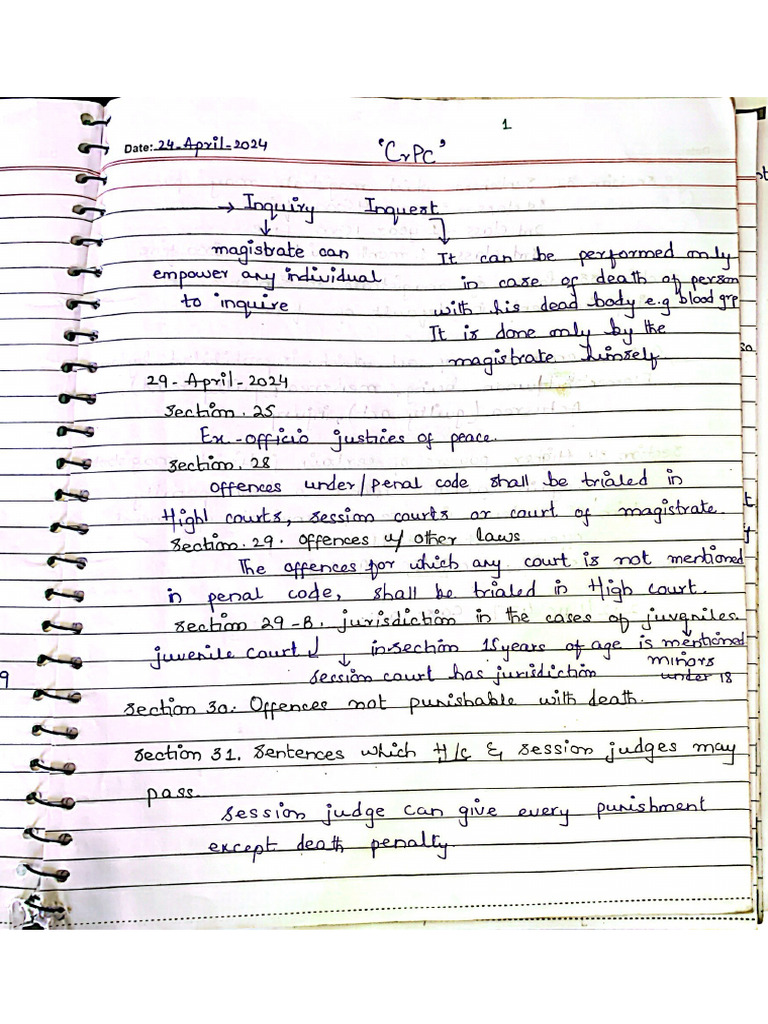 1
Date: 24-April-2024 'CrPC'
→ Inquiry Inquest
magistrate can It can be performed only
empower any individual in case of death of person
to inquire with his dead body e.g blood grp
It is done only by the
magistrate himself.
29-April-2024
Section. 25
Ex-officio justices of peace.
Section. 28
offences under/penal code shall be trialed in
High courts, session courts or court of magistrate.
Section. 29. offences w/ other laws
The offences for which any court is not mentioned
in penal code, shall be trialed in High court.
Section 29-B. jurisdiction in the cases of juveniles.
juvenile court in section 15 years of age is mentioned
session court has jurisdiction minors
under 18
Section 30. Offences not punishable with death.
Section 31. Sentences which H/c & session judges may
pass.
Session judge can give every punishment
except death penalty.
9
st
sa
t
f